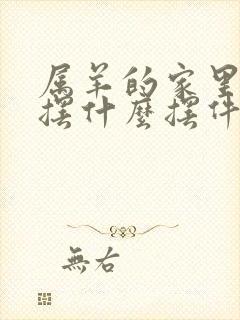 属羊的家里
摆什麼摆件
無右